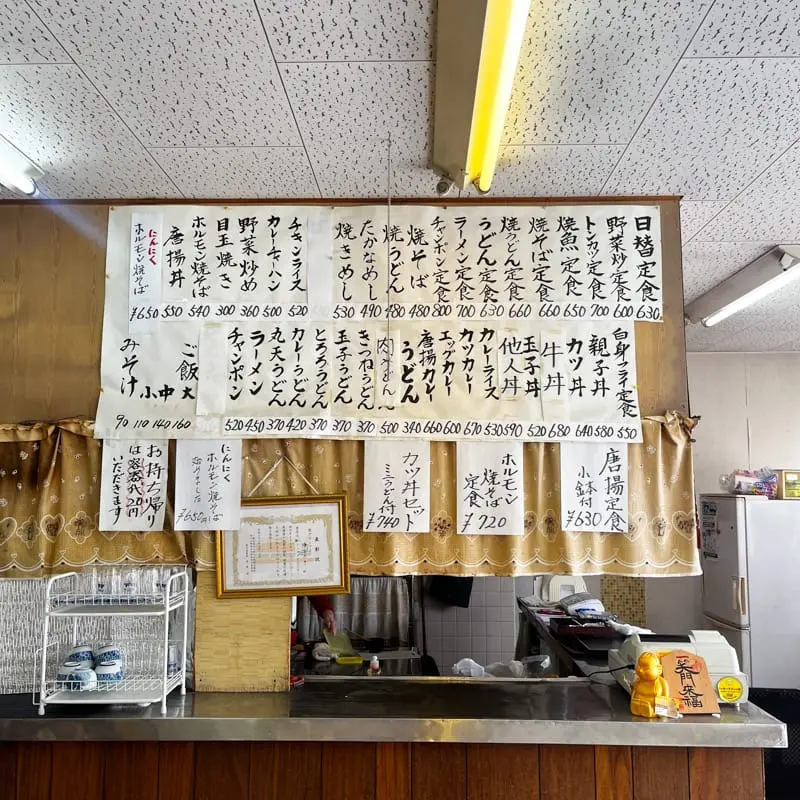 日替定食 630
野菜炒定食 600
トンカツ定食 700
焼魚定食 650
焼そば定食 660
焼うどん定食 660
うどん定食 630
ラーメン定食 700
チャンポン定食 800
焼そば 480
焼うどん 480
たかなめし 490
焼きめし 530
チキンライス 520
カレーチャーハン 500
野菜炒め 360
目玉焼き 300
ホルモン焼そば 540
唐揚丼 550
にんにく
ホルモン焼そば ¥650
白身フライ定食 550
親子丼 580
カツ丼 640
牛丼 680
玉子丼 520
他人丼 590
カレーライス 530
カツカレー 670
エッグカレー 600
唐揚カレー 660
うどん 340
肉うどん 500
きつねうどん 370
玉子うどん 370
とろろうどん 370
カレーうどん 420
丸天うどん 370
ラーメン 450
チャンポン 520
ご飯
大 160
中 140
小 110
みそ汁 90
唐揚定食
小鉢付
¥630
ホルモン
焼そば
定食
¥720
カツ丼セット
ミニうどん付
¥740
にんにく
ホルモン焼そば
始めました
¥650
お持ち帰り
は容器代20円
いただきます
表彰状
笑門来福